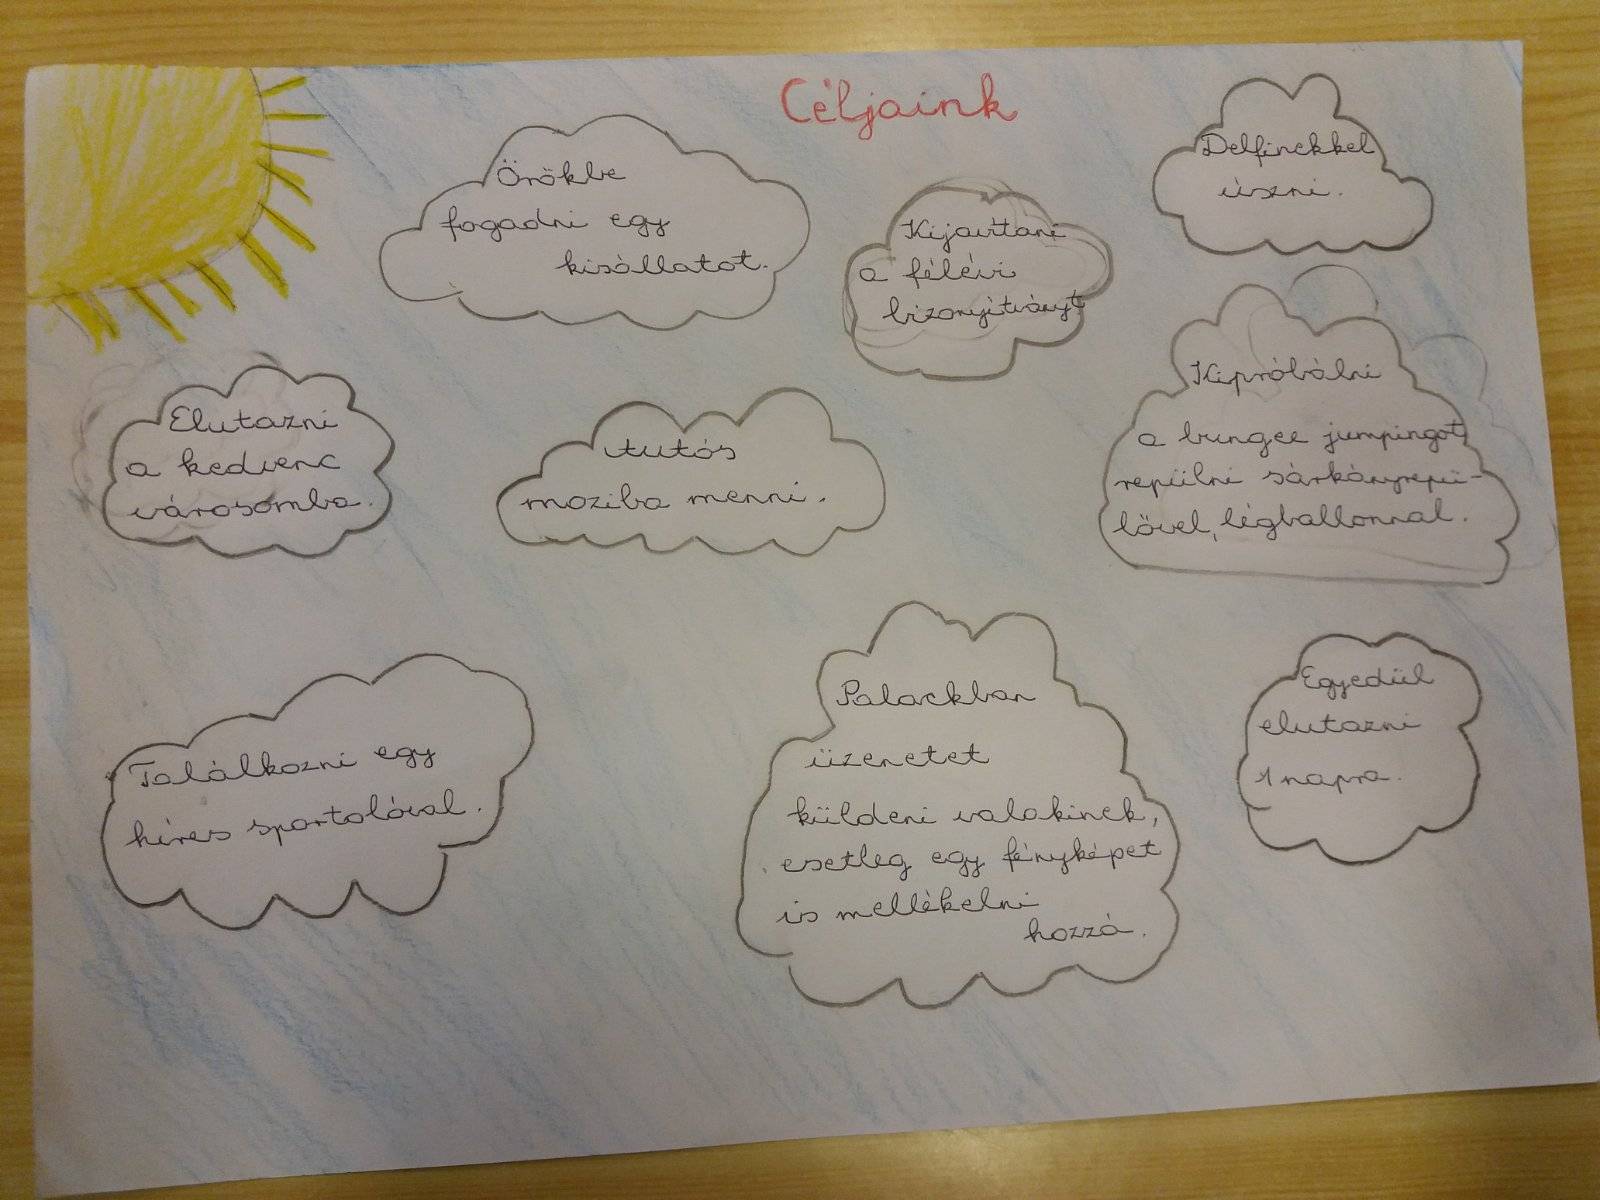 Céljaink
Örökbe
fogadni egy
kisállatot.
Kijavítani
a félévi
bizonyítványt
Delfinekkel
úszni.
Elutazni
a kedvenc
városomba.
Autós
moziba menni.
Kipróbálni
a bungee jumpingot
repülni sárkányrepü-
lővel, légballonnal.
Találkozni egy
híres sportolóval.
Palackban
üzenetet
küldeni valakinek,
esetleg egy fényképet
is mellékelni
hozzá.
Egyedül
elutazni
1 napra.